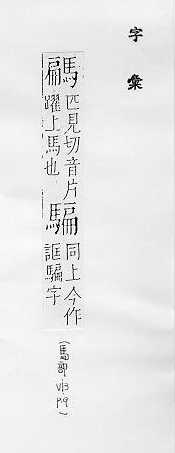 字彚
騗 匹見切音片
躍上馬也
騙 同上今作
誆騙字
(馬部 V13 P.9)